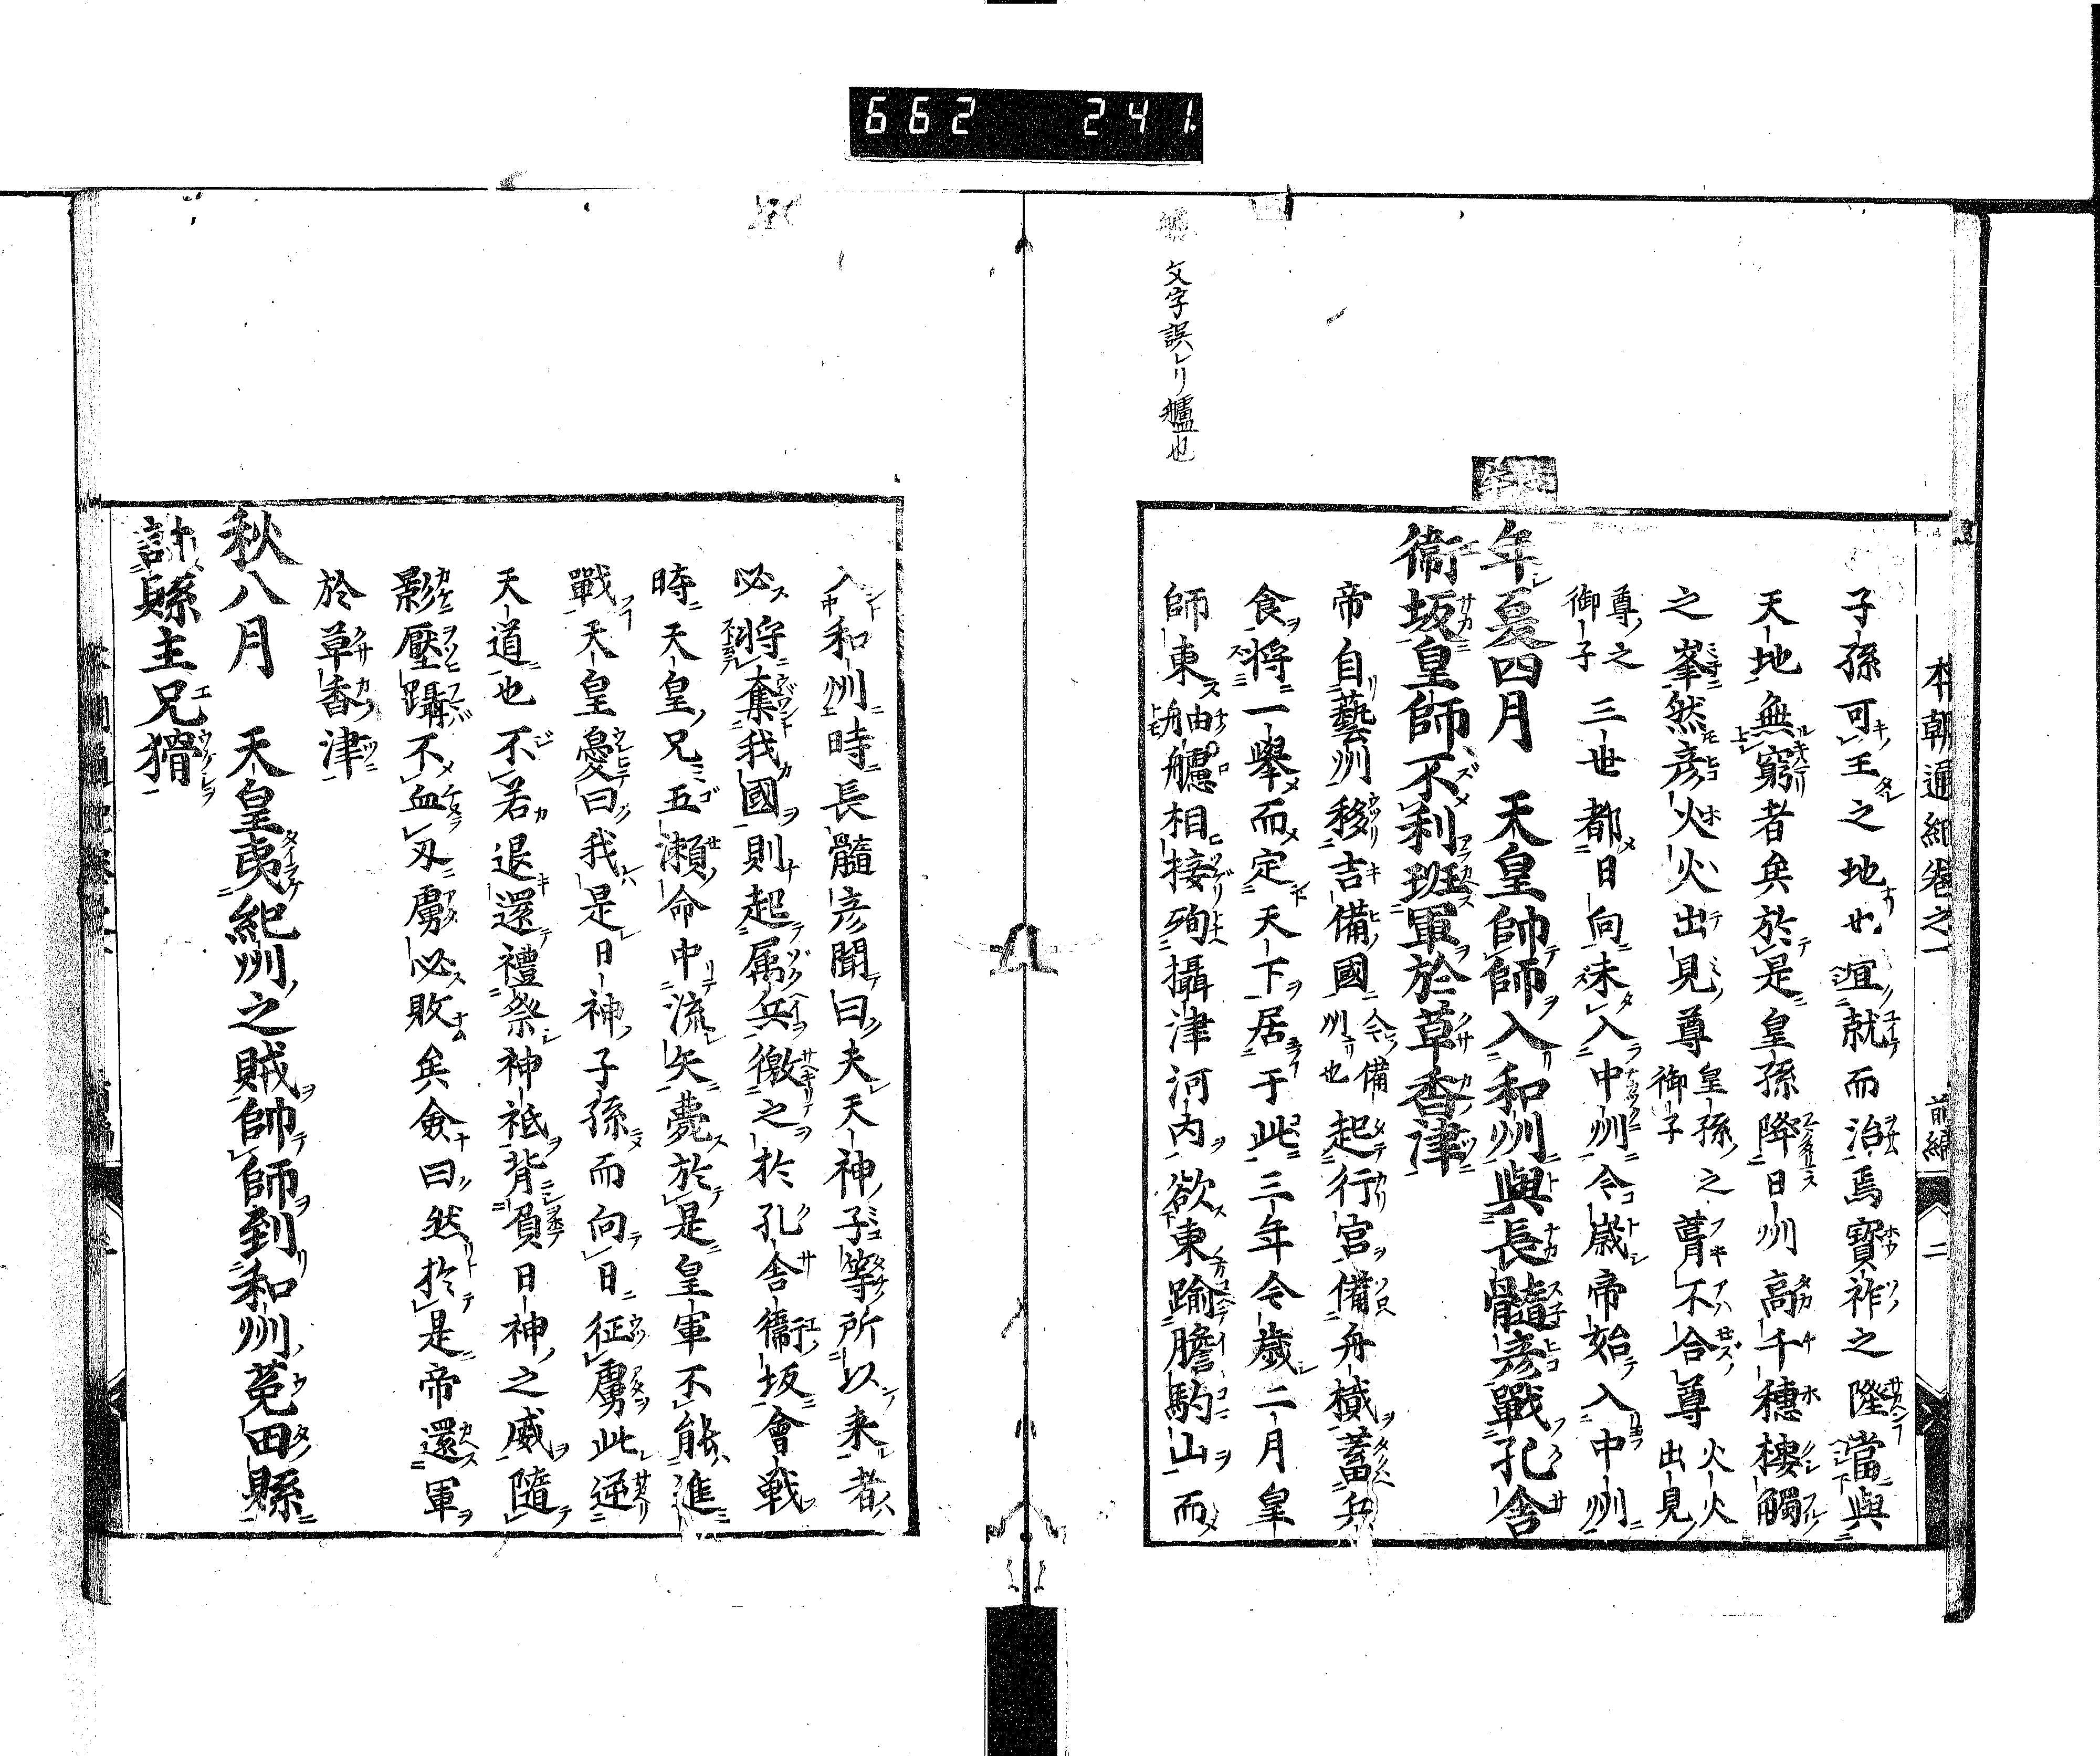 662 241
本朝通紀卷之一 前編 二
子孫可王之地也宜就而治焉寶祚之隆當與
天地無窮者矣於是皇孫降日州高千穗樓觸
之峯然彦火火出見尊皇孫之御子葺不合尊火火出見
尊之御子三世都日向未入中州今歲帝始入中州
年夏四月 天皇帥師入和州與長髓彦戰孔舎
衞坂皇師不利班軍於草香津
帝自藝州移吉備國今備州也起行宮備舟檝蓄兵
食將一擧而定天下居于此三年今歲二月皇
師東舳艫相接殉攝津河內欲東踰膽駒山而
文字誤レリ艫也
入和州時長髓彦聞曰夫天神子等所以来者
必將奪我國則起属兵徼之於孔舎衞坂會戰
時天皇兄五瀬命中流矢薨於是皇軍不能進
戰天皇憂曰我是日神子孫而向日征虜此逆
天道也不若退還禮祭神祇背負日神之威隨
影壓躡不血刄虜必敗矣僉曰然於是帝還軍
於草香津
秋八月 天皇夷紀州之賊帥師到和州菟田縣
討縣主兄猾